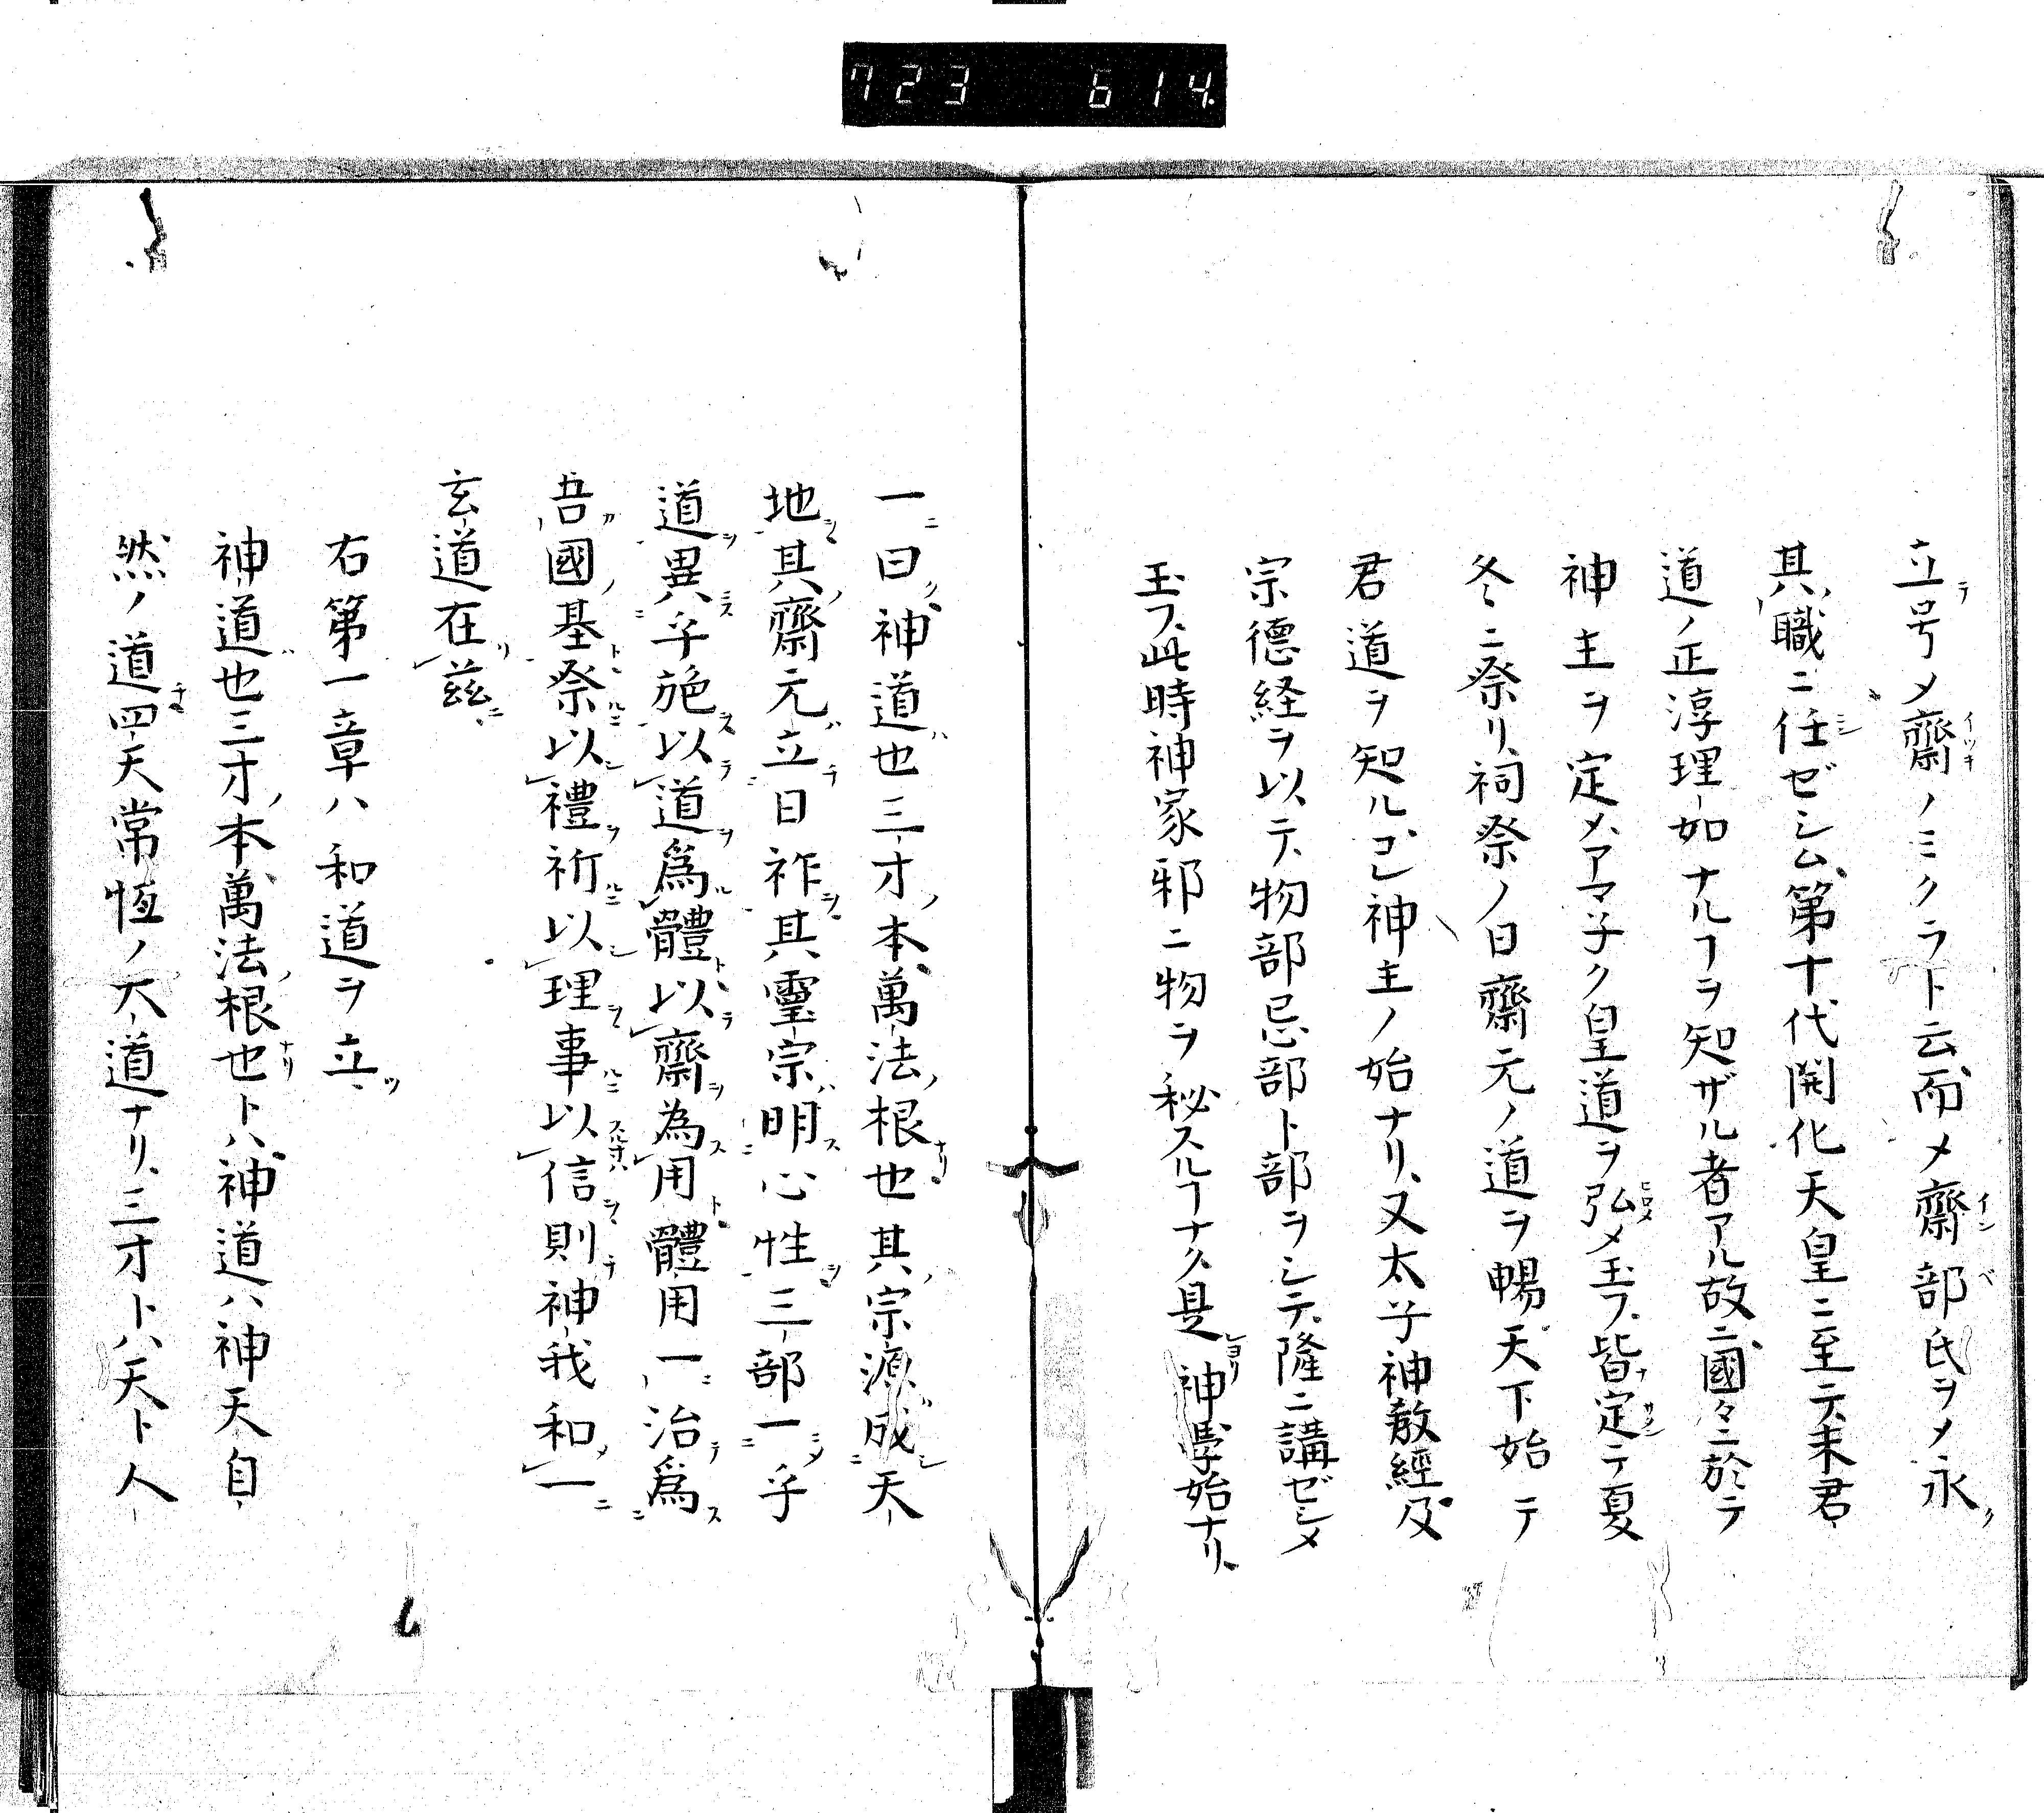 723 614
立号〆齋ノミクラト云、而〆齋部氏ヲ〆永
其職ニ任ゼシム、第十代開化天皇ニ至テ、未君
道ノ正淳理如ナルヿヲ知ザル者アル故ニ、國々ニ於テ
神主ヲ定メ、アマ子ク皇道ヲ弘メ玉フ、皆定テ夏
冬ニ祭リ、祠祭ノ日齋元ノ道ヲ暢、天下始テ
君道ヲ知ル、コレ神主ノ始ナリ、又太子神教經及
宗德経ヲ以テ、物部忌部卜部ヲシテ、隆ニ講ゼシメ
玉フ、此時神家邪ニ物ヲ秘スルヿナク、是神學始ナリ、
一曰神道也三才本萬法根也其宗源成天
地其齋元立日祚其靈宗明心性三部一乎
道異乎施以道爲體以齋為用體用一治爲
吾國基祭以禮祈以理事以信則神我和一
玄道在茲
右第一章ハ和道ヲ立
神道也三才本萬法根也トハ、神道ハ神天自
然ノ道四天常恆ノ大道ナリ、三才トハ天ト人